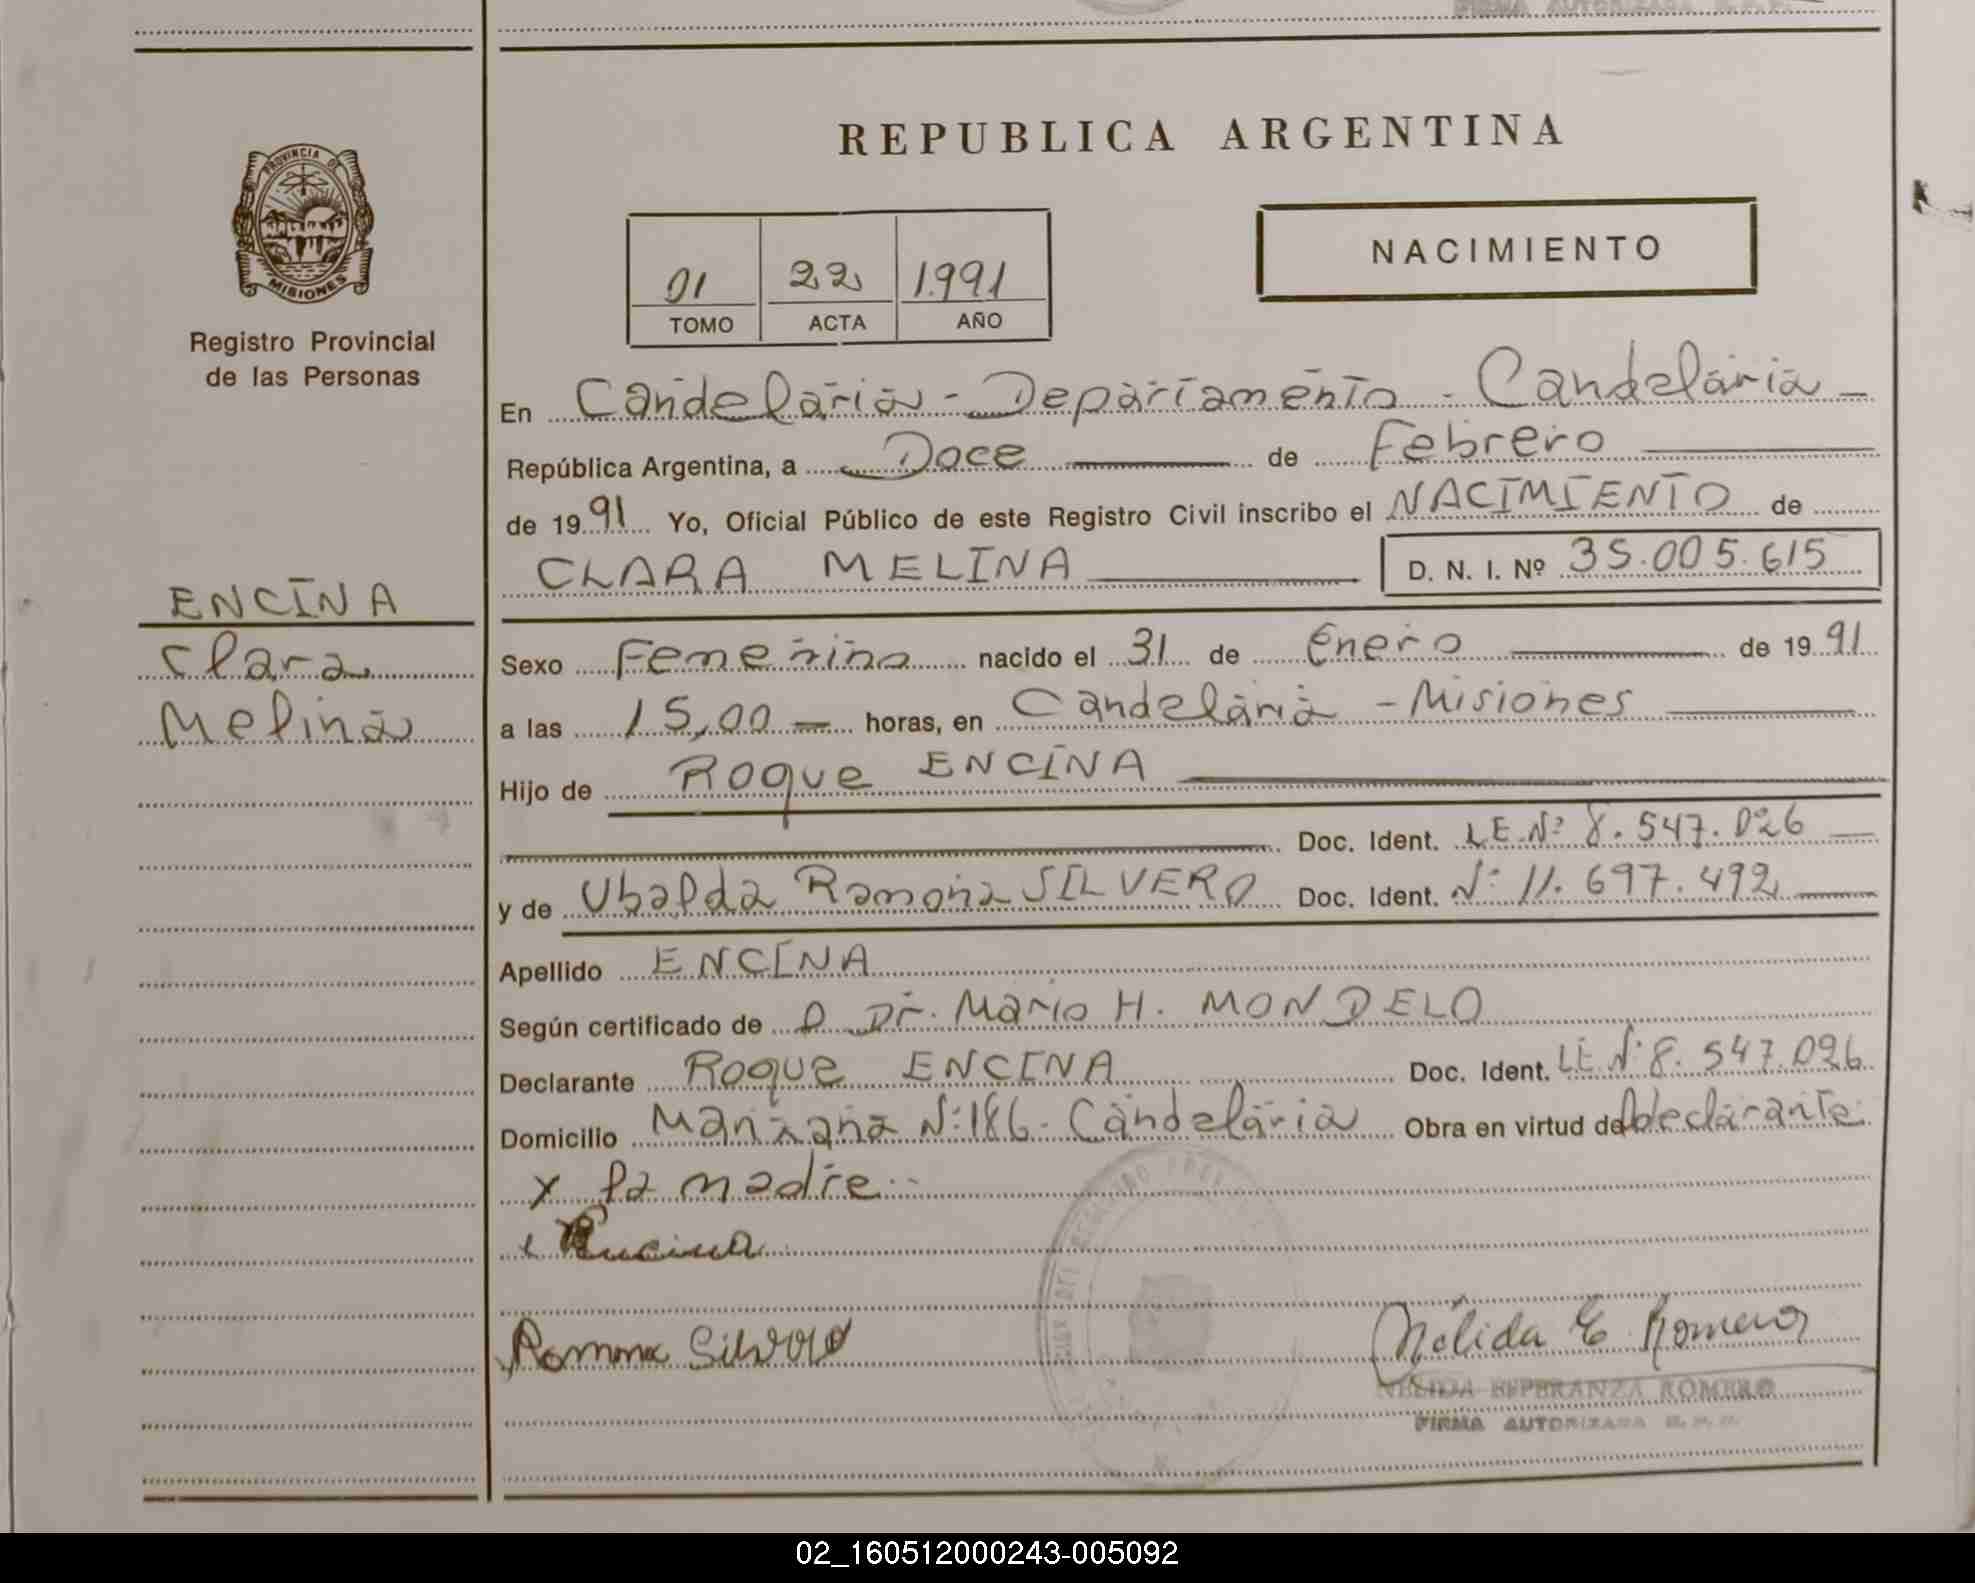 FIRMA AUTORIZADA R.P.P.
REPUBLICA ARGENTINA
PROVINCIA DE
MISIONES
Registro Provincial
de las Personas
01 22 1.991
TOMO ACTA AÑO
NACIMIENTO
En Candelaria - Departamento - Candelaria -
República Argentina, a Doce de Febrero
de 19 91 Yo, Oficial Público de este Registro Civil inscribo el NACIMIENTO de
CLARA MELINA D. N. I. Nº 35.005.615
ENCINA
Clara
Melina
Sexo Femenino nacido el 31 de Enero de 19 91
a las 15,00 = horas, en Candelaria - Misiones
Hijo de Roque ENCINA
Doc. Ident. L.E.Nº 8.547.026
y de Ubalda Ramona SILVERO Doc. Ident. Nº 11.697.492
Apellido ENCINA
Según certificado de D Dr. Mario H. MONDELO
Declarante Roque ENCINA Doc. Ident. LE Nº 8.547.026
Domicilio Manzana Nº 186 - Candelaria Obra en virtud de declarante
x la madre
Encina
Ramona Silvero
Nélida E. Romero
NELIDA ESPERANZA ROMERO
FIRMA AUTORIZADA R.P.P.
02_160512000243-005092